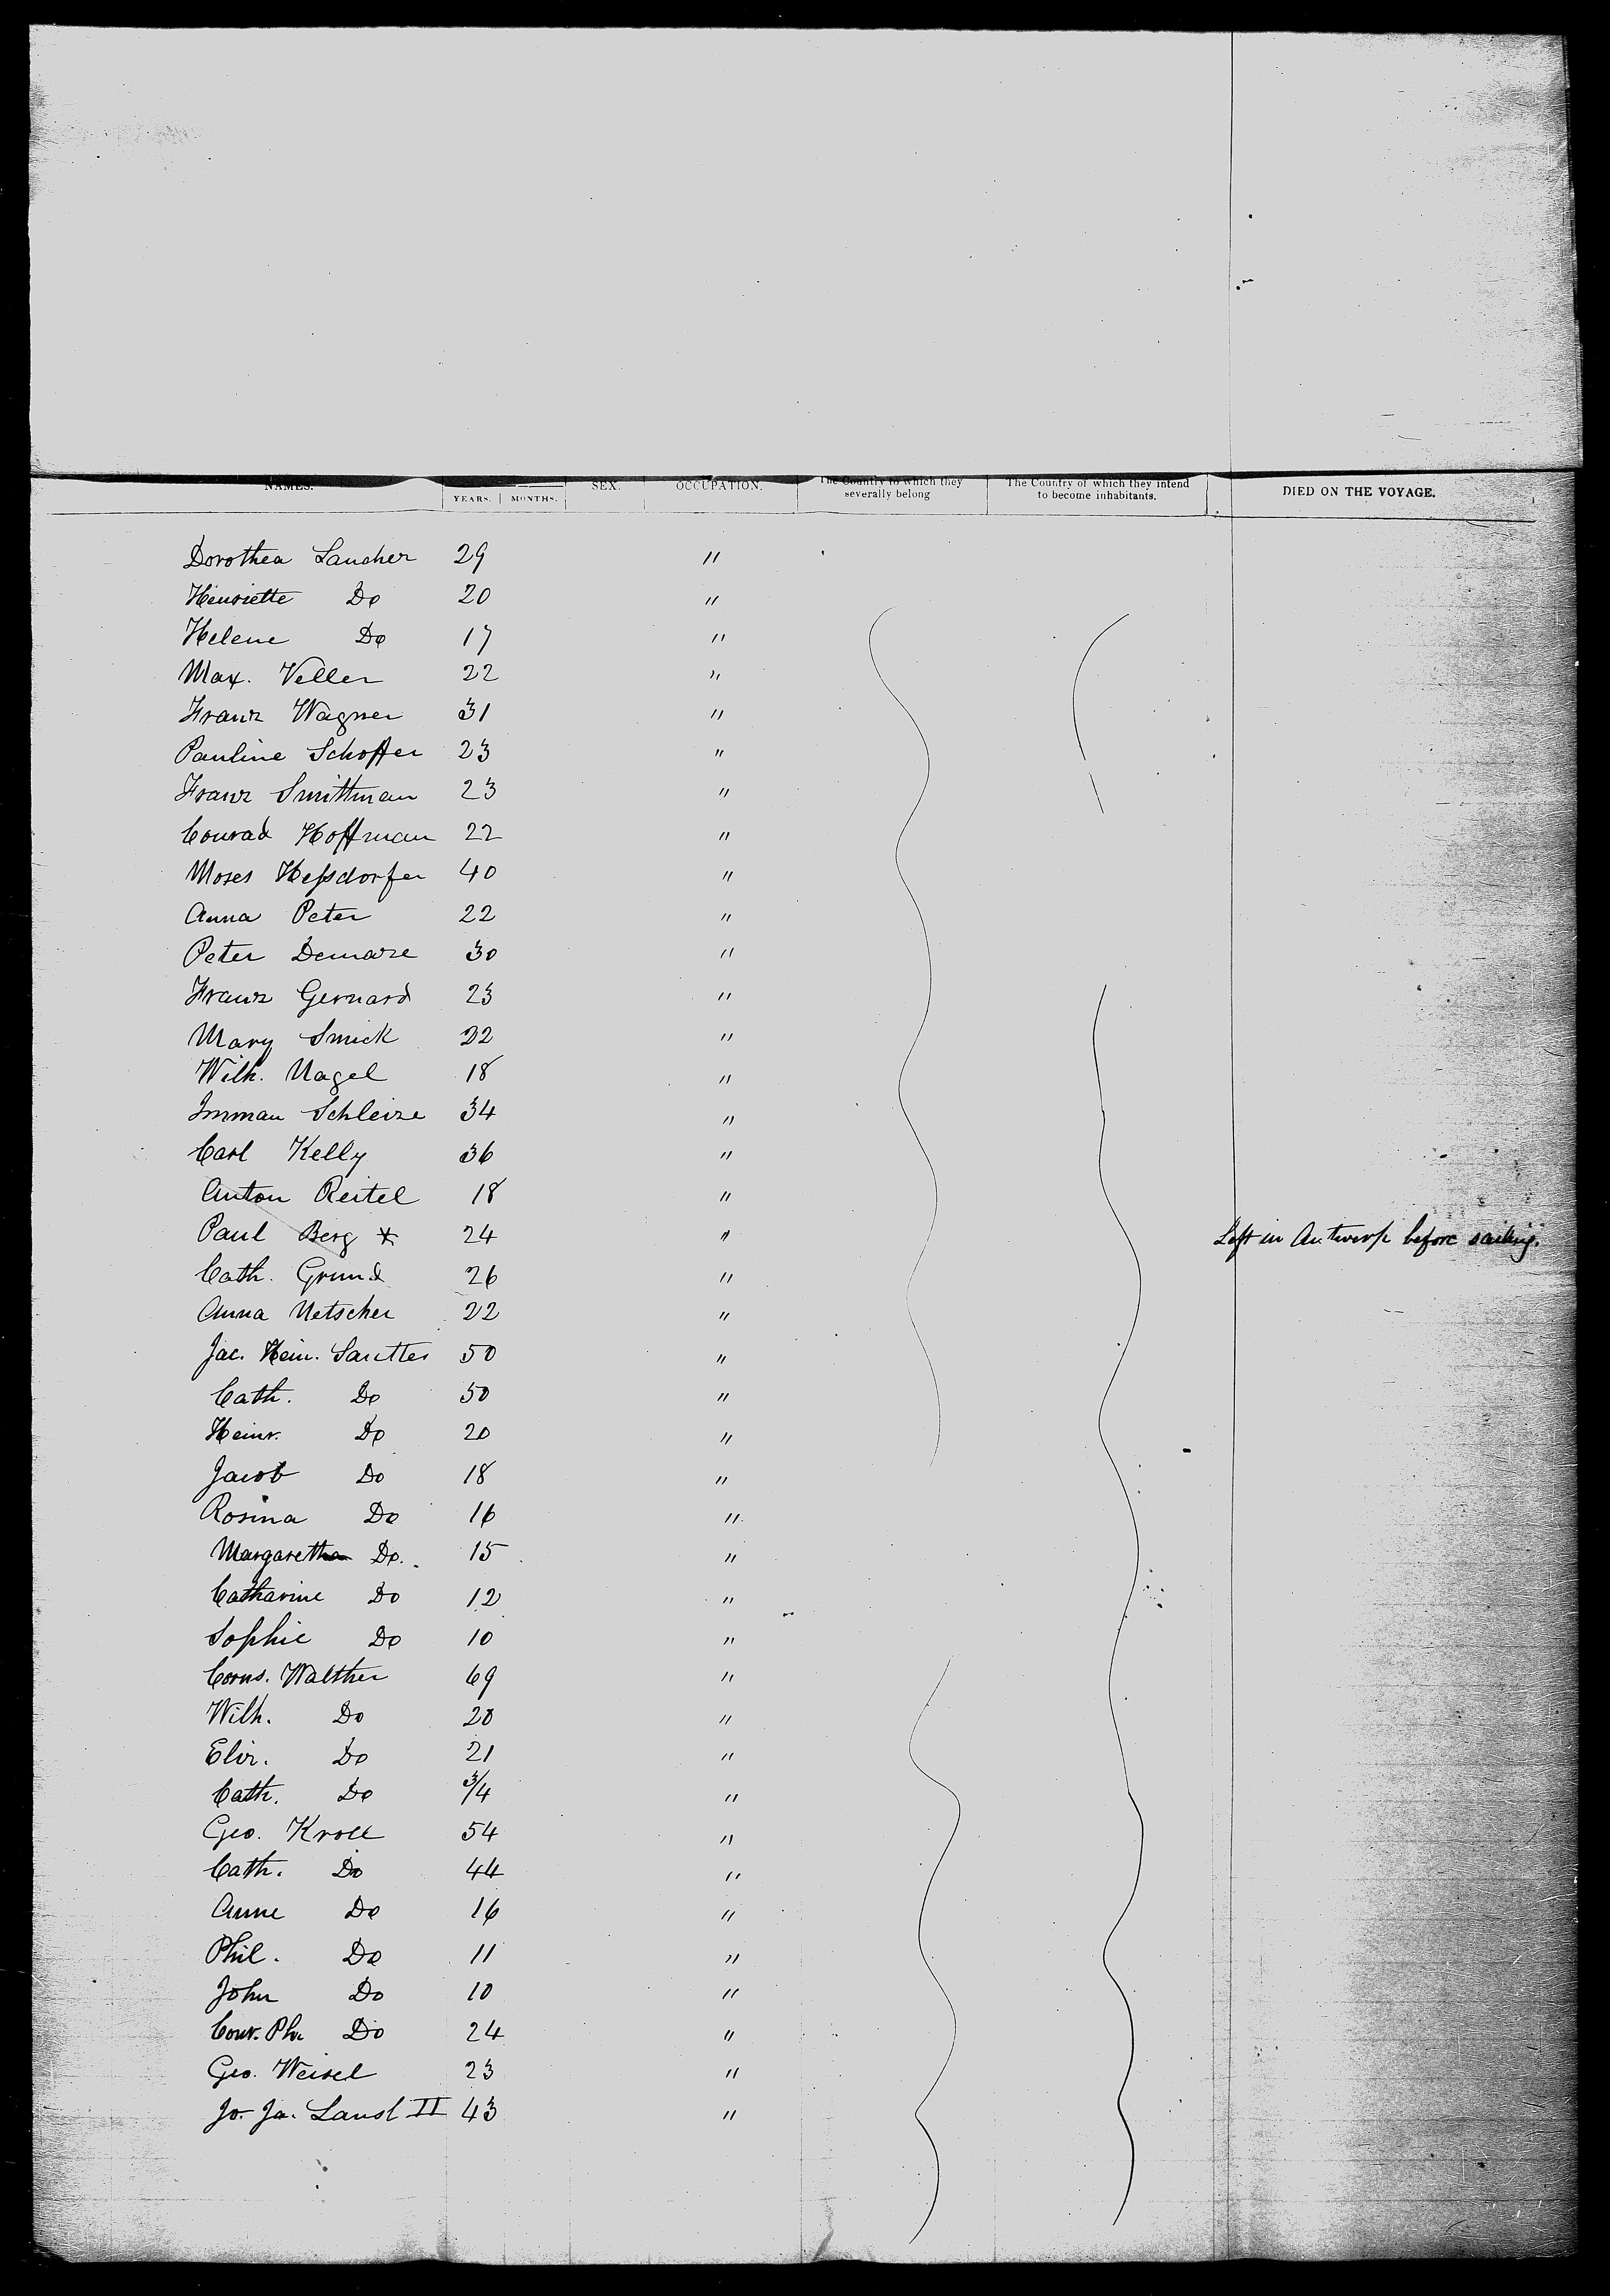 NAMES. YEARS. MONTHS. SEX. OCCUPATION. The Country to which they severally belong The Country of which they intend to become inhabitants. DIED ON THE VOYAGE.
Dorothea Laucher 29 "
Henriette Do 20 "
Helene Do 17 "
Max. Veller 22 "
Franz Wagner 31 "
Pauline Schoffer 23 "
Franz Smittman 23 "
Conrad Hoffman 22 "
Moses Heßdorfer 40 "
Anna Peter 22 "
Peter Demare 30 "
Franz Gernard 23 "
Mary Smick 22 "
Wilh. Nagel 18 "
Imman Schleize 34 "
Carl Kelly 36 "
Anton Reitel 18 "
Paul Berg * 24 " Left in Antwerp before sailing.
Cath. Grund 26 "
Anna Netscher 22 "
Jac. Hein. Sautter 50 "
Cath. Do 50 "
Heinr. Do 20 "
Jacob Do 18 "
Rosina Do 16 "
Margaretha Do. 15 "
Catharine Do 12 "
Sophie Do 10 "
Corns. Walther 69 "
Wilh. Do 20 "
Eliz. Do 21 "
Cath. Do 3/4 "
Geo. Kroll 54 "
Cath. Do 44 "
Anne Do 16 "
Phil. Do 11 "
John Do 10 "
Conr. Ph. Do 24 "
Geo. Weisel 23 "
Jo. Ja. Laust II 43 "